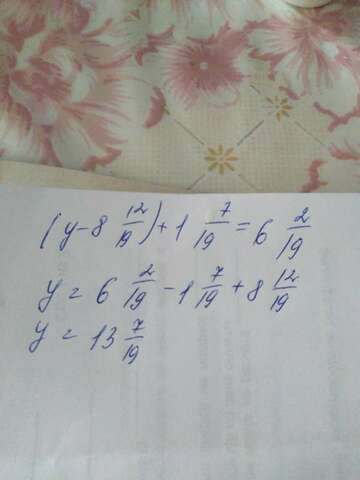 (y - 8 12/19) + 1 7/19 = 6 2/19
y = 6 2/19 - 1 7/19 + 8 12/19
y = 13 7/19